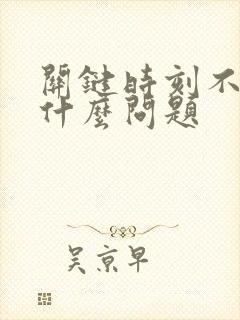 關鍵時刻不
什麼問題
吳京早